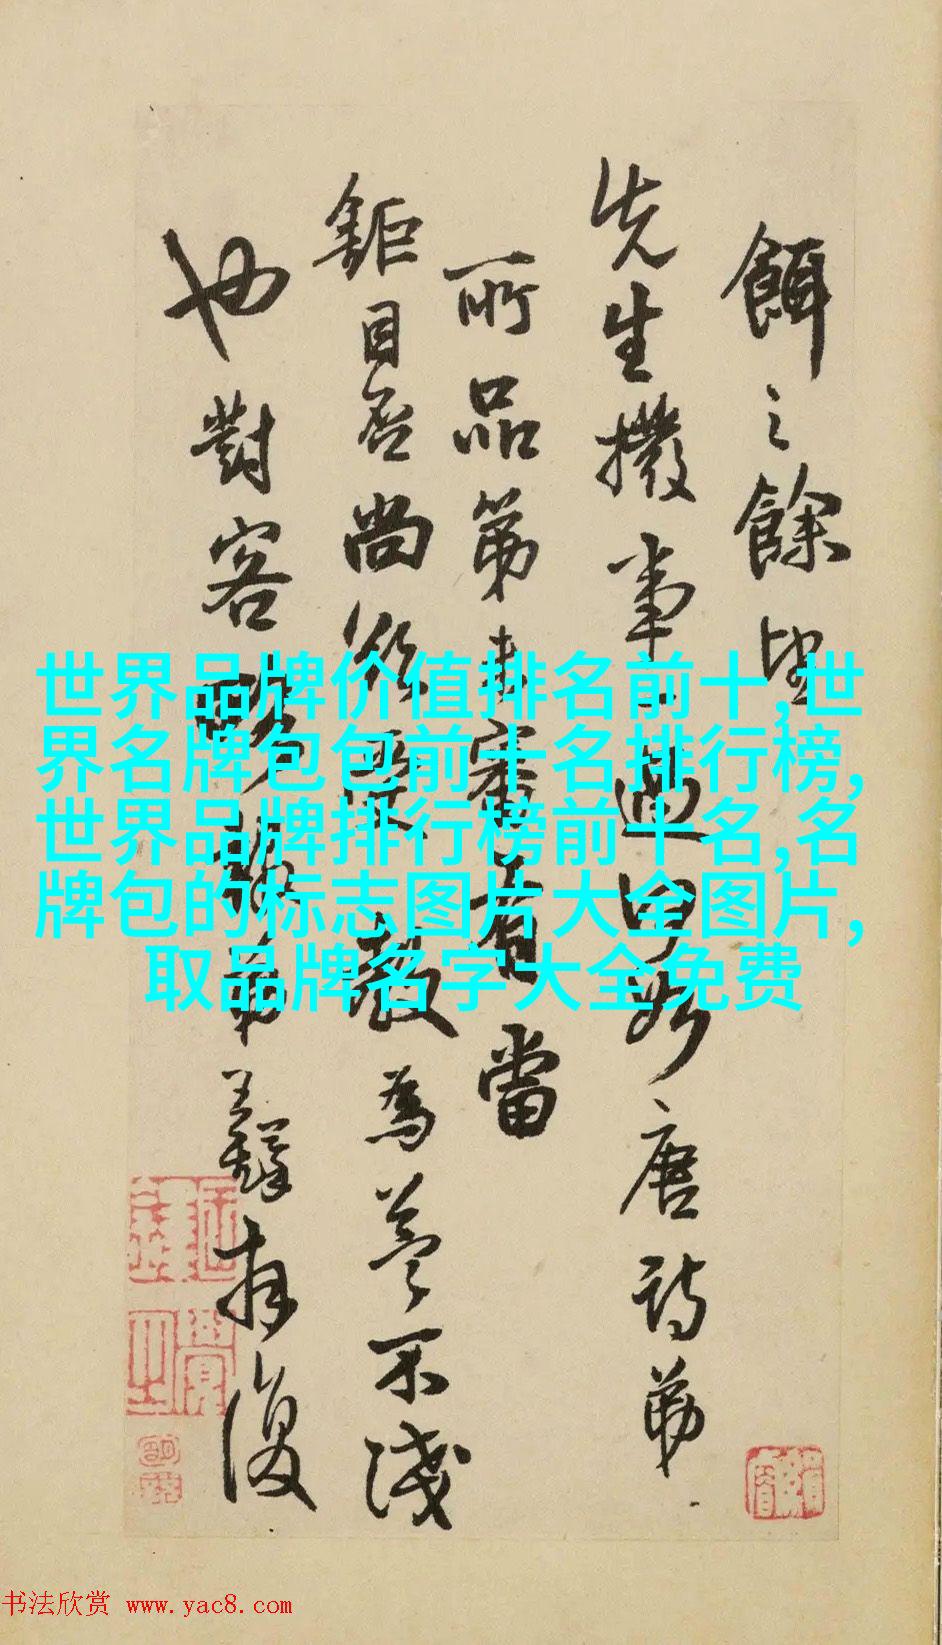 餌之餘望
先生撥事一過唐詩弟
所品第未審看當
鉅目否尚欲教為不淺
也對客弟王鐸復
世界品牌价值排名前十,世
界名牌包包前十名排行榜,
世界品牌排行榜前十名,名
牌包的标志图片大全图片,
取品牌名字大全免费
书法欣赏 www.yac8.com